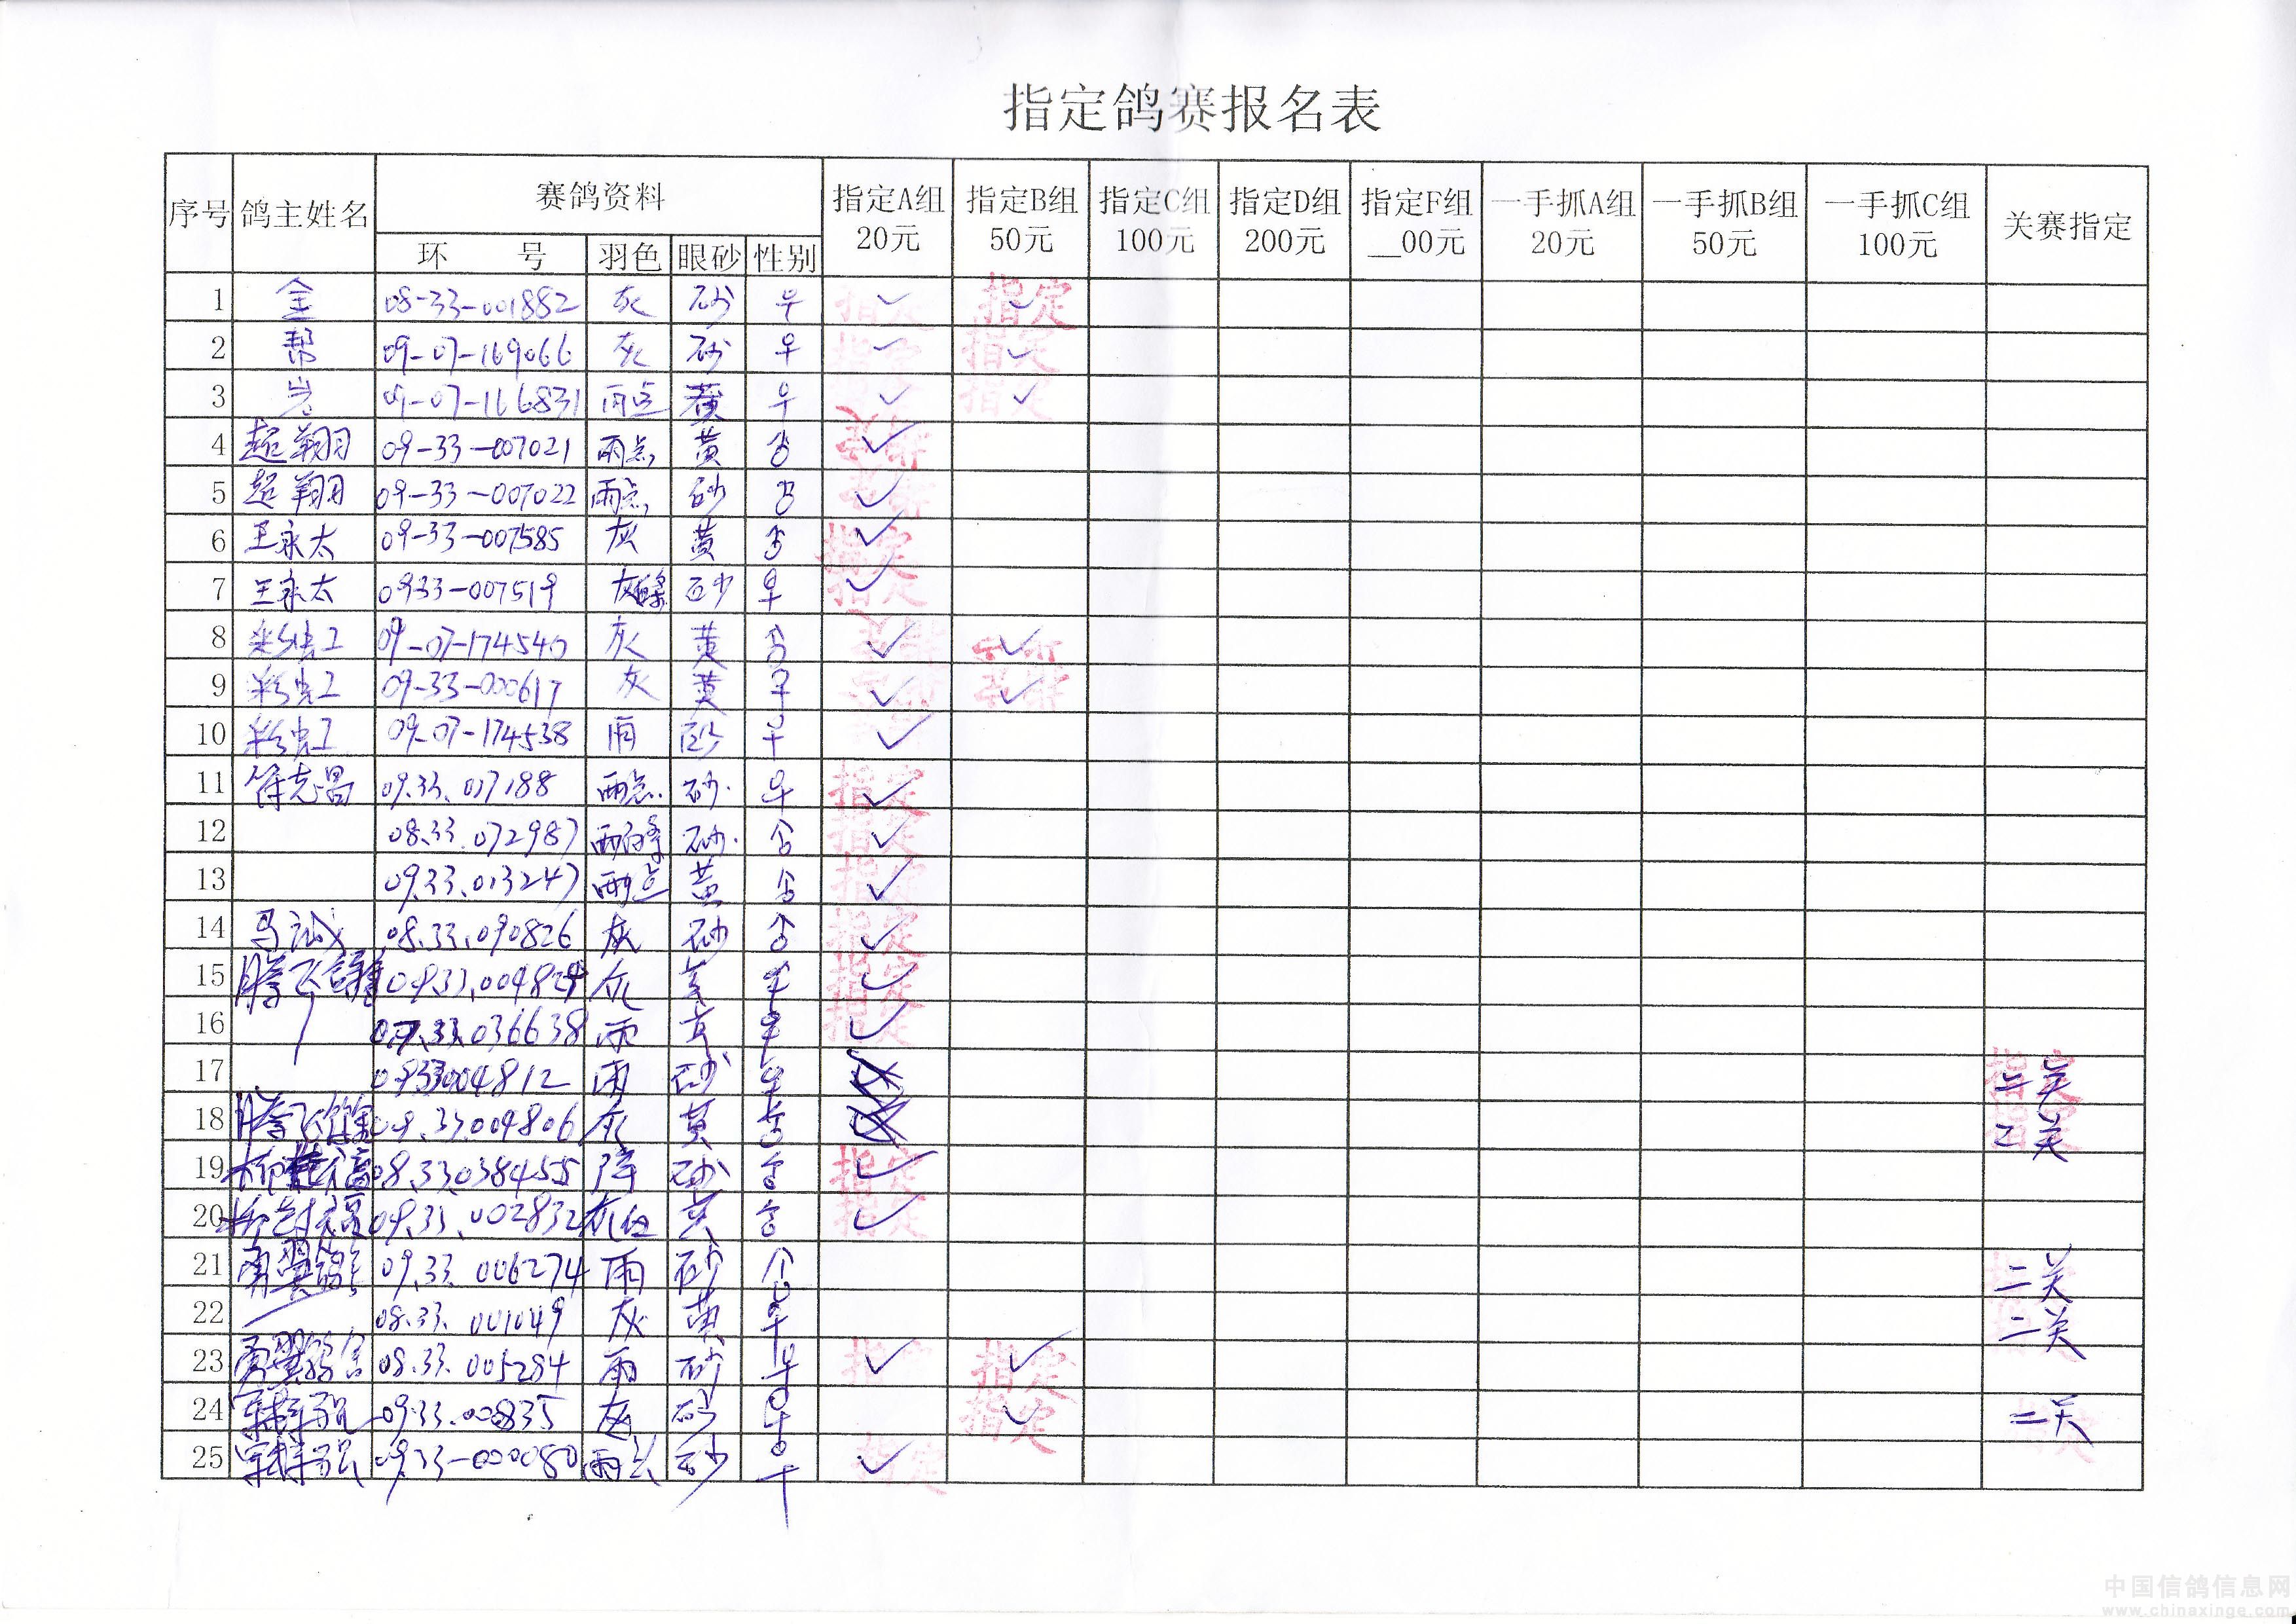 指定鸽赛报名表
序号 鸽主姓名 赛鸽资料 指定A组 20元 指定B组 50元 指定C组 100元 指定D组 200元 指定F组 __00元 一手抓A组 20元 一手抓B组 50元 一手抓C组 100元 关赛指定
环 号 羽色 眼砂 性别
1 金 08-33-001882 灰 砂 ♀ ✓ ✓ 指定
2 帮 09-07-169066 灰 砂 ♀ ✓ ✓ 指定
3 岩 09-07-166831 雨点 黄 ♀ ✓ ✓ 指定
4 超翔 09-33-007021 雨点 黄 ✓
5 超翔 09-33-007022 雨点 砂 ✓
6 王永太 09-33-007585 灰 黄 ✓ 指定
7 王永太 0933-007519 砂 ♀ ✓ 指定
8 09-07-174540 灰 黄 ✓ ✓
9 彩虹 09-33-000617 灰 黄 ♀ ✓ ✓
10 彩虹 09-07-174538 雨 砂 ♀ ✓
11 徐志昌 09.33.017188 雨点 砂 ♀ ✓ 指定
12 08.33.072987 砂 ✓ 指定
13 09.33.013247 雨点 黄 ✓ 指定
14 马斌 08.33.090826 灰 砂 ✓ 指定
15 腾飞鸽 09.33.004824 灰 黄 ♀ ✓ 指定
16 07.33.036638 雨 黄 ♀ ✓ 指定
17 0933004812 雨 砂 ♀ 指定 二关
18 腾飞鸽 09.33.004806 灰 黄 指定 二关
19 08.33.038455 砂 ✓ 指定
20 09.33.002832 黄 ✓ 指定
21 勇翼鸽舍 09.33.006274 雨 砂 二关
22 08.33.001049 灰 黄 ♀ 二关
23 勇翼鸽舍 08.33.005284 雨 砂 ♀ ✓ ✓ 指定
24 09.33.00835 灰 砂 ♀ ✓ 指定 二关
25 09.33-000080 雨点 砂 ♀ ✓ 指定
中国信鸽信息网
www.chinaxinge.com